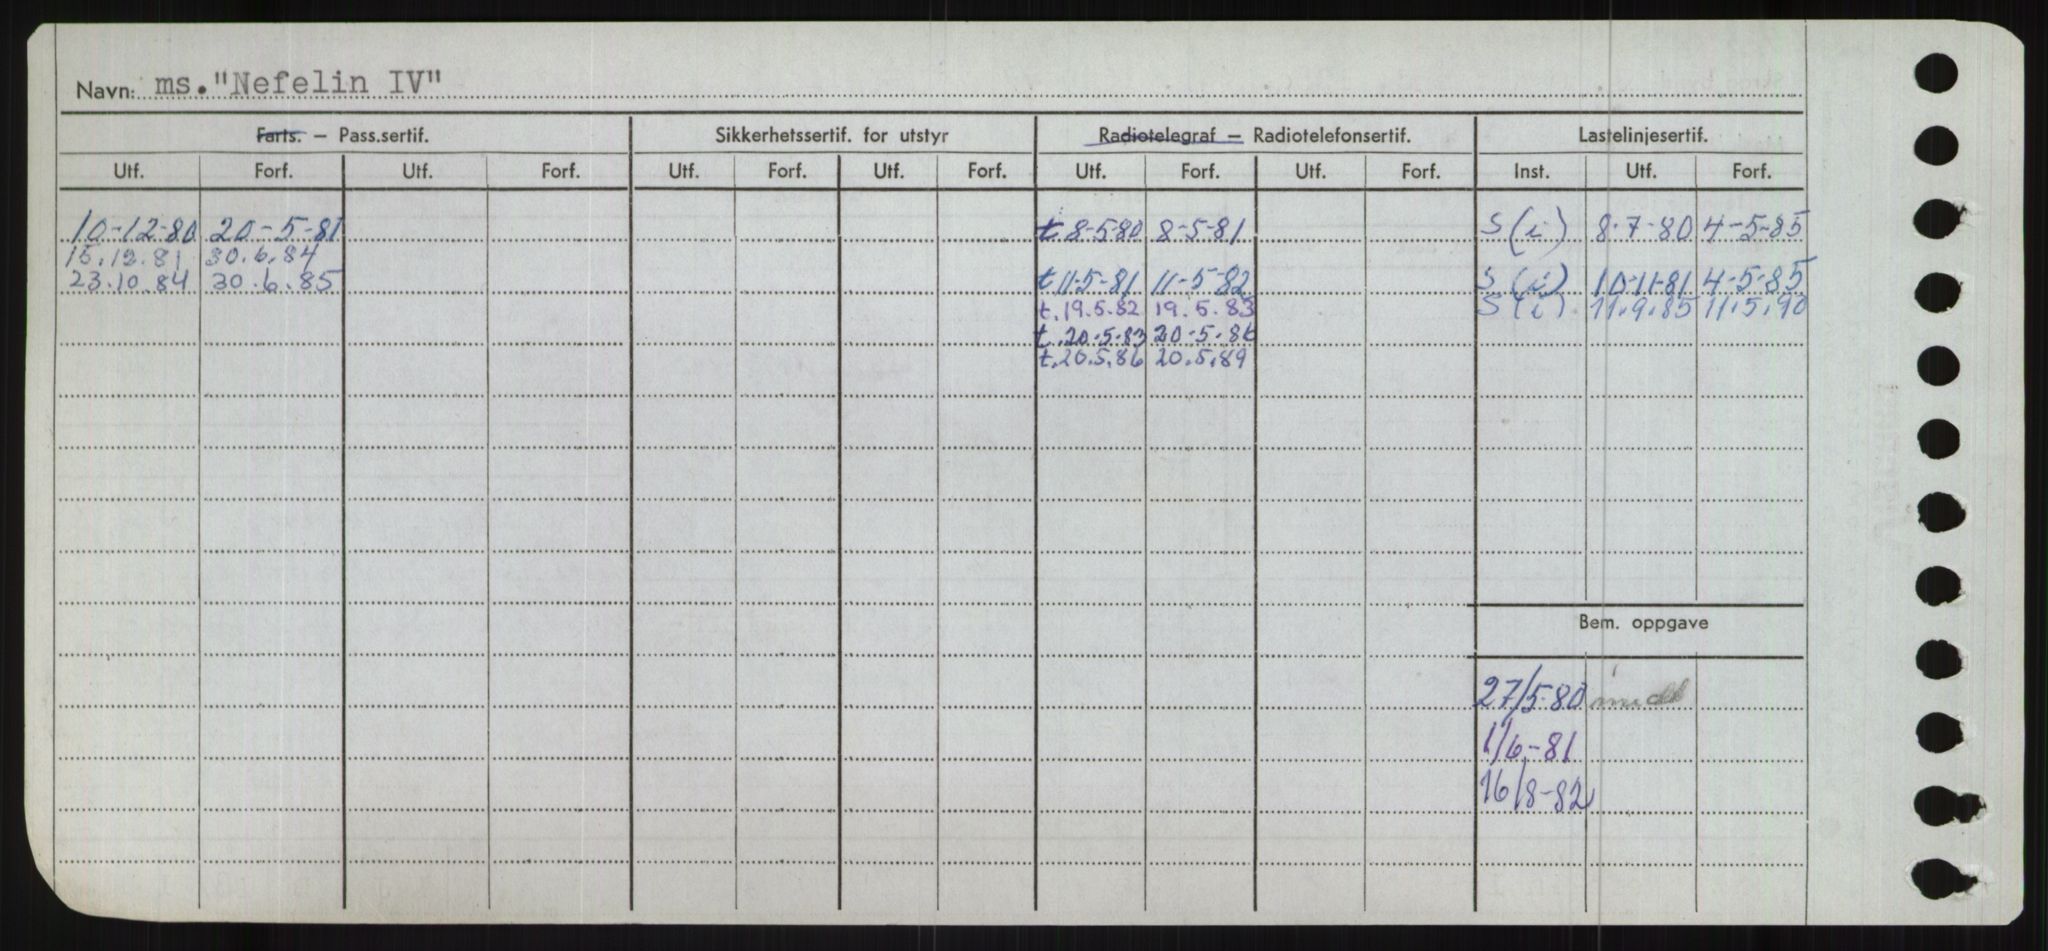 Navn: ms. "Nefelin IV"
Farts. – Pass.sertif. Sikkerhetssertif. for utstyr Radiotelegraf – Radiotelefonsertif. Lastelinjesertif.
Utf. Forf. Utf. Forf. Utf. Forf. Utf. Forf. Utf. Forf. Utf. Forf. Inst. Utf. Forf.
10-12-80 20-5-81 t 8-5-80 8-5-81 S (i) 8-7-80 4-5-85
15.12.81 30.6.84
23.10.84 30.6.85 t 11-5-81 11-5-82 S (i) 10-11-81 4-5-85
t. 19.5.82 19.5.83 S (i) 11.9.85 11.5.90
t. 20-5-83 20-5-86
t. 20.5.86 20.5.89
Bem. oppgave
27/5-80
1/6-81
16/8-82